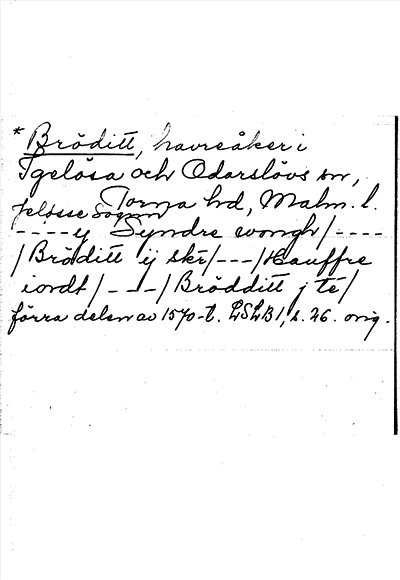 *Bröditt, havreåker i
Igelösa och Odarslövs sn,
Torna hd, Malm. l.
jelösse Sogen
----y Syndre wongh/----
/Bröditt ij skr/---/Hauffre
iordt/---/Brödditt j té/
förra delen av 1570-t. LSLB1, s. 26. orig.